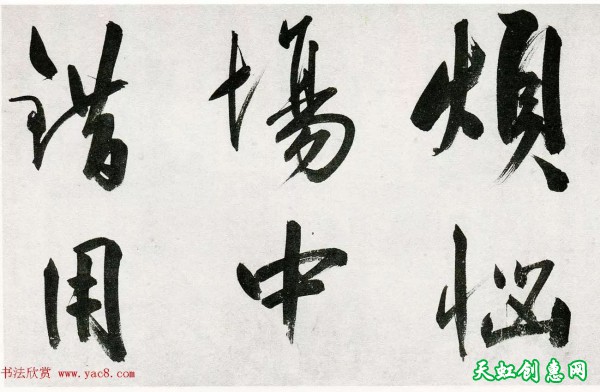 煩惱
塲中
錯用
书法欣赏 www.yac8.com
天虹创惠网